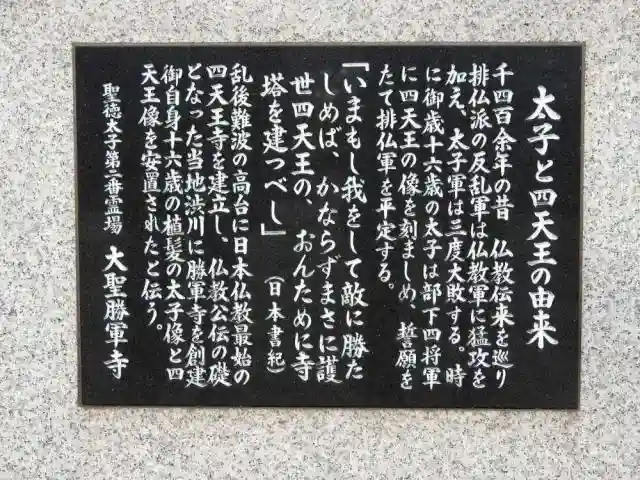 太子と四天王の由来
千四百余年の昔　仏教伝来を巡り
排仏派の反乱軍は仏教軍に猛攻を
加え、太子軍は三度大敗する。時
に御歳十六歳の太子は部下四将軍
に四天王の像を刻ましめ、誓願を
たて排仏軍を平定する。
「いまもし我をして敵に勝た
しめば、かならずまさに護
世四天王の、おんために寺
塔を建つべし」（日本書紀）
乱後難波の高台に日本仏教最始の
四天王寺を建立し、仏教公伝の礎
となった当地渋川に勝軍寺を創建
御自身十六歳の植髪の太子像と四
天王像を安置されたと伝う。
聖徳太子第二番霊場　大聖勝軍寺